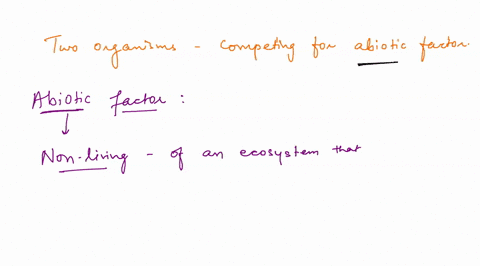 Two organisms - Competing for abiotic factor.
Abiotic factor :
Non-living - of an ecosystem that